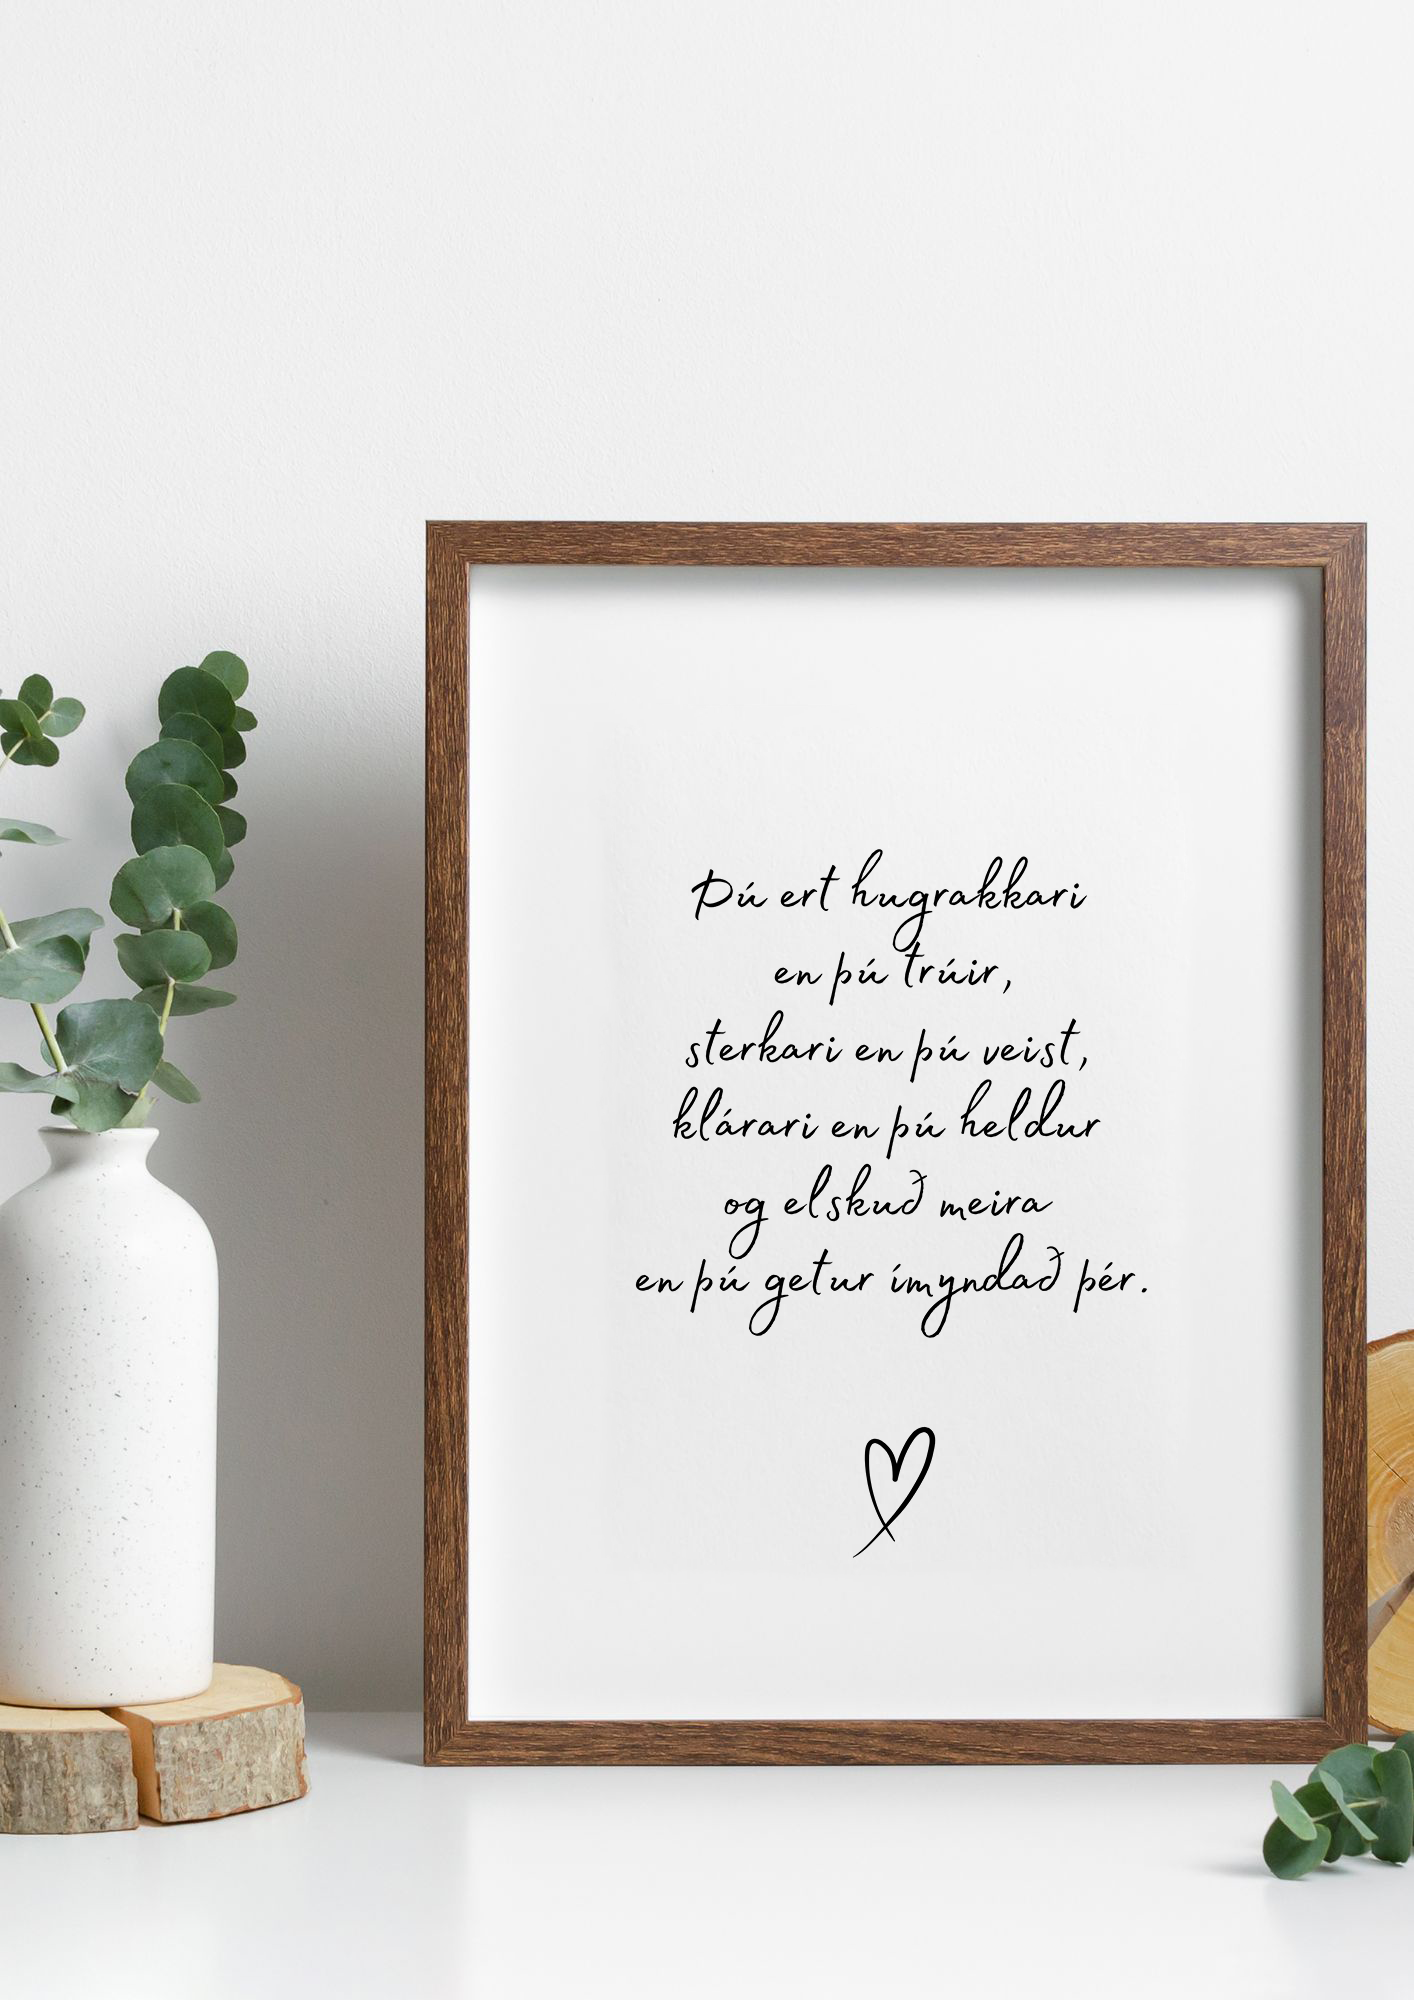 Þú ert hugrakkari
en þú trúir,
sterkari en þú veist,
klárari en þú heldur
og elskuð meira
en þú getur ímyndað þér.